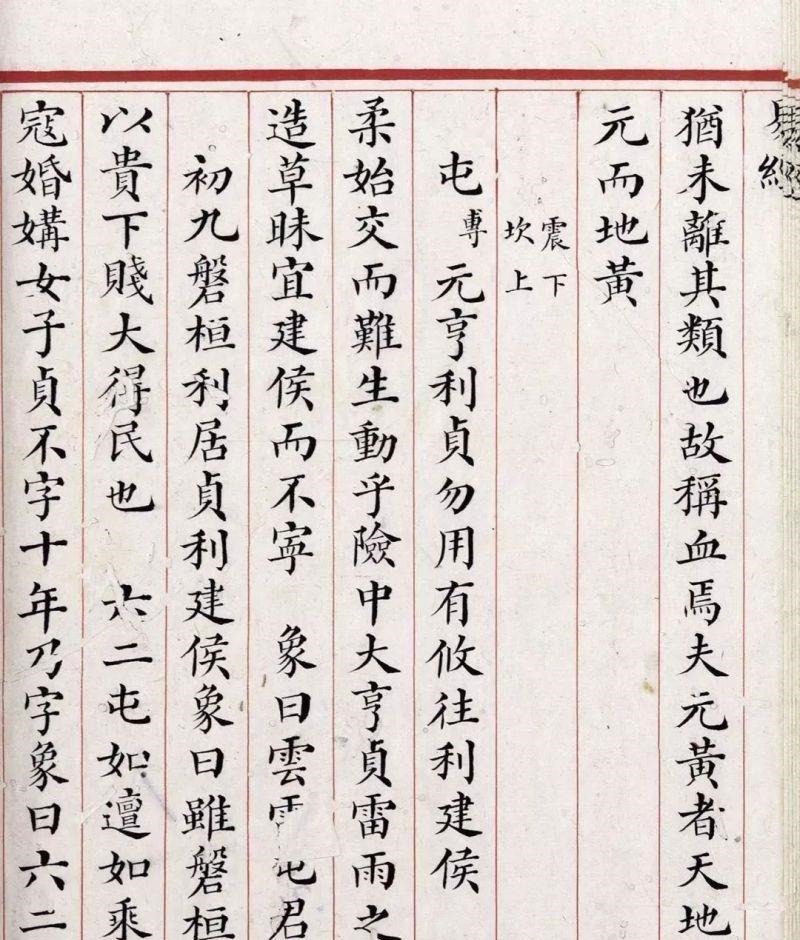 易經
猶未離其類也故稱血焉夫元黃者天地
元而地黃
震下
坎上
屯 專 元亨利貞勿用有攸往利建侯
柔始交而難生動乎險中大亨貞雷雨之
造草昧宜建侯而不寧 象曰雲雷屯君
初九磐桓利居貞利建侯象曰雖磐桓
以貴下賤大得民也 六二屯如邅如乘
寇婚媾女子貞不字十年乃字象曰六二